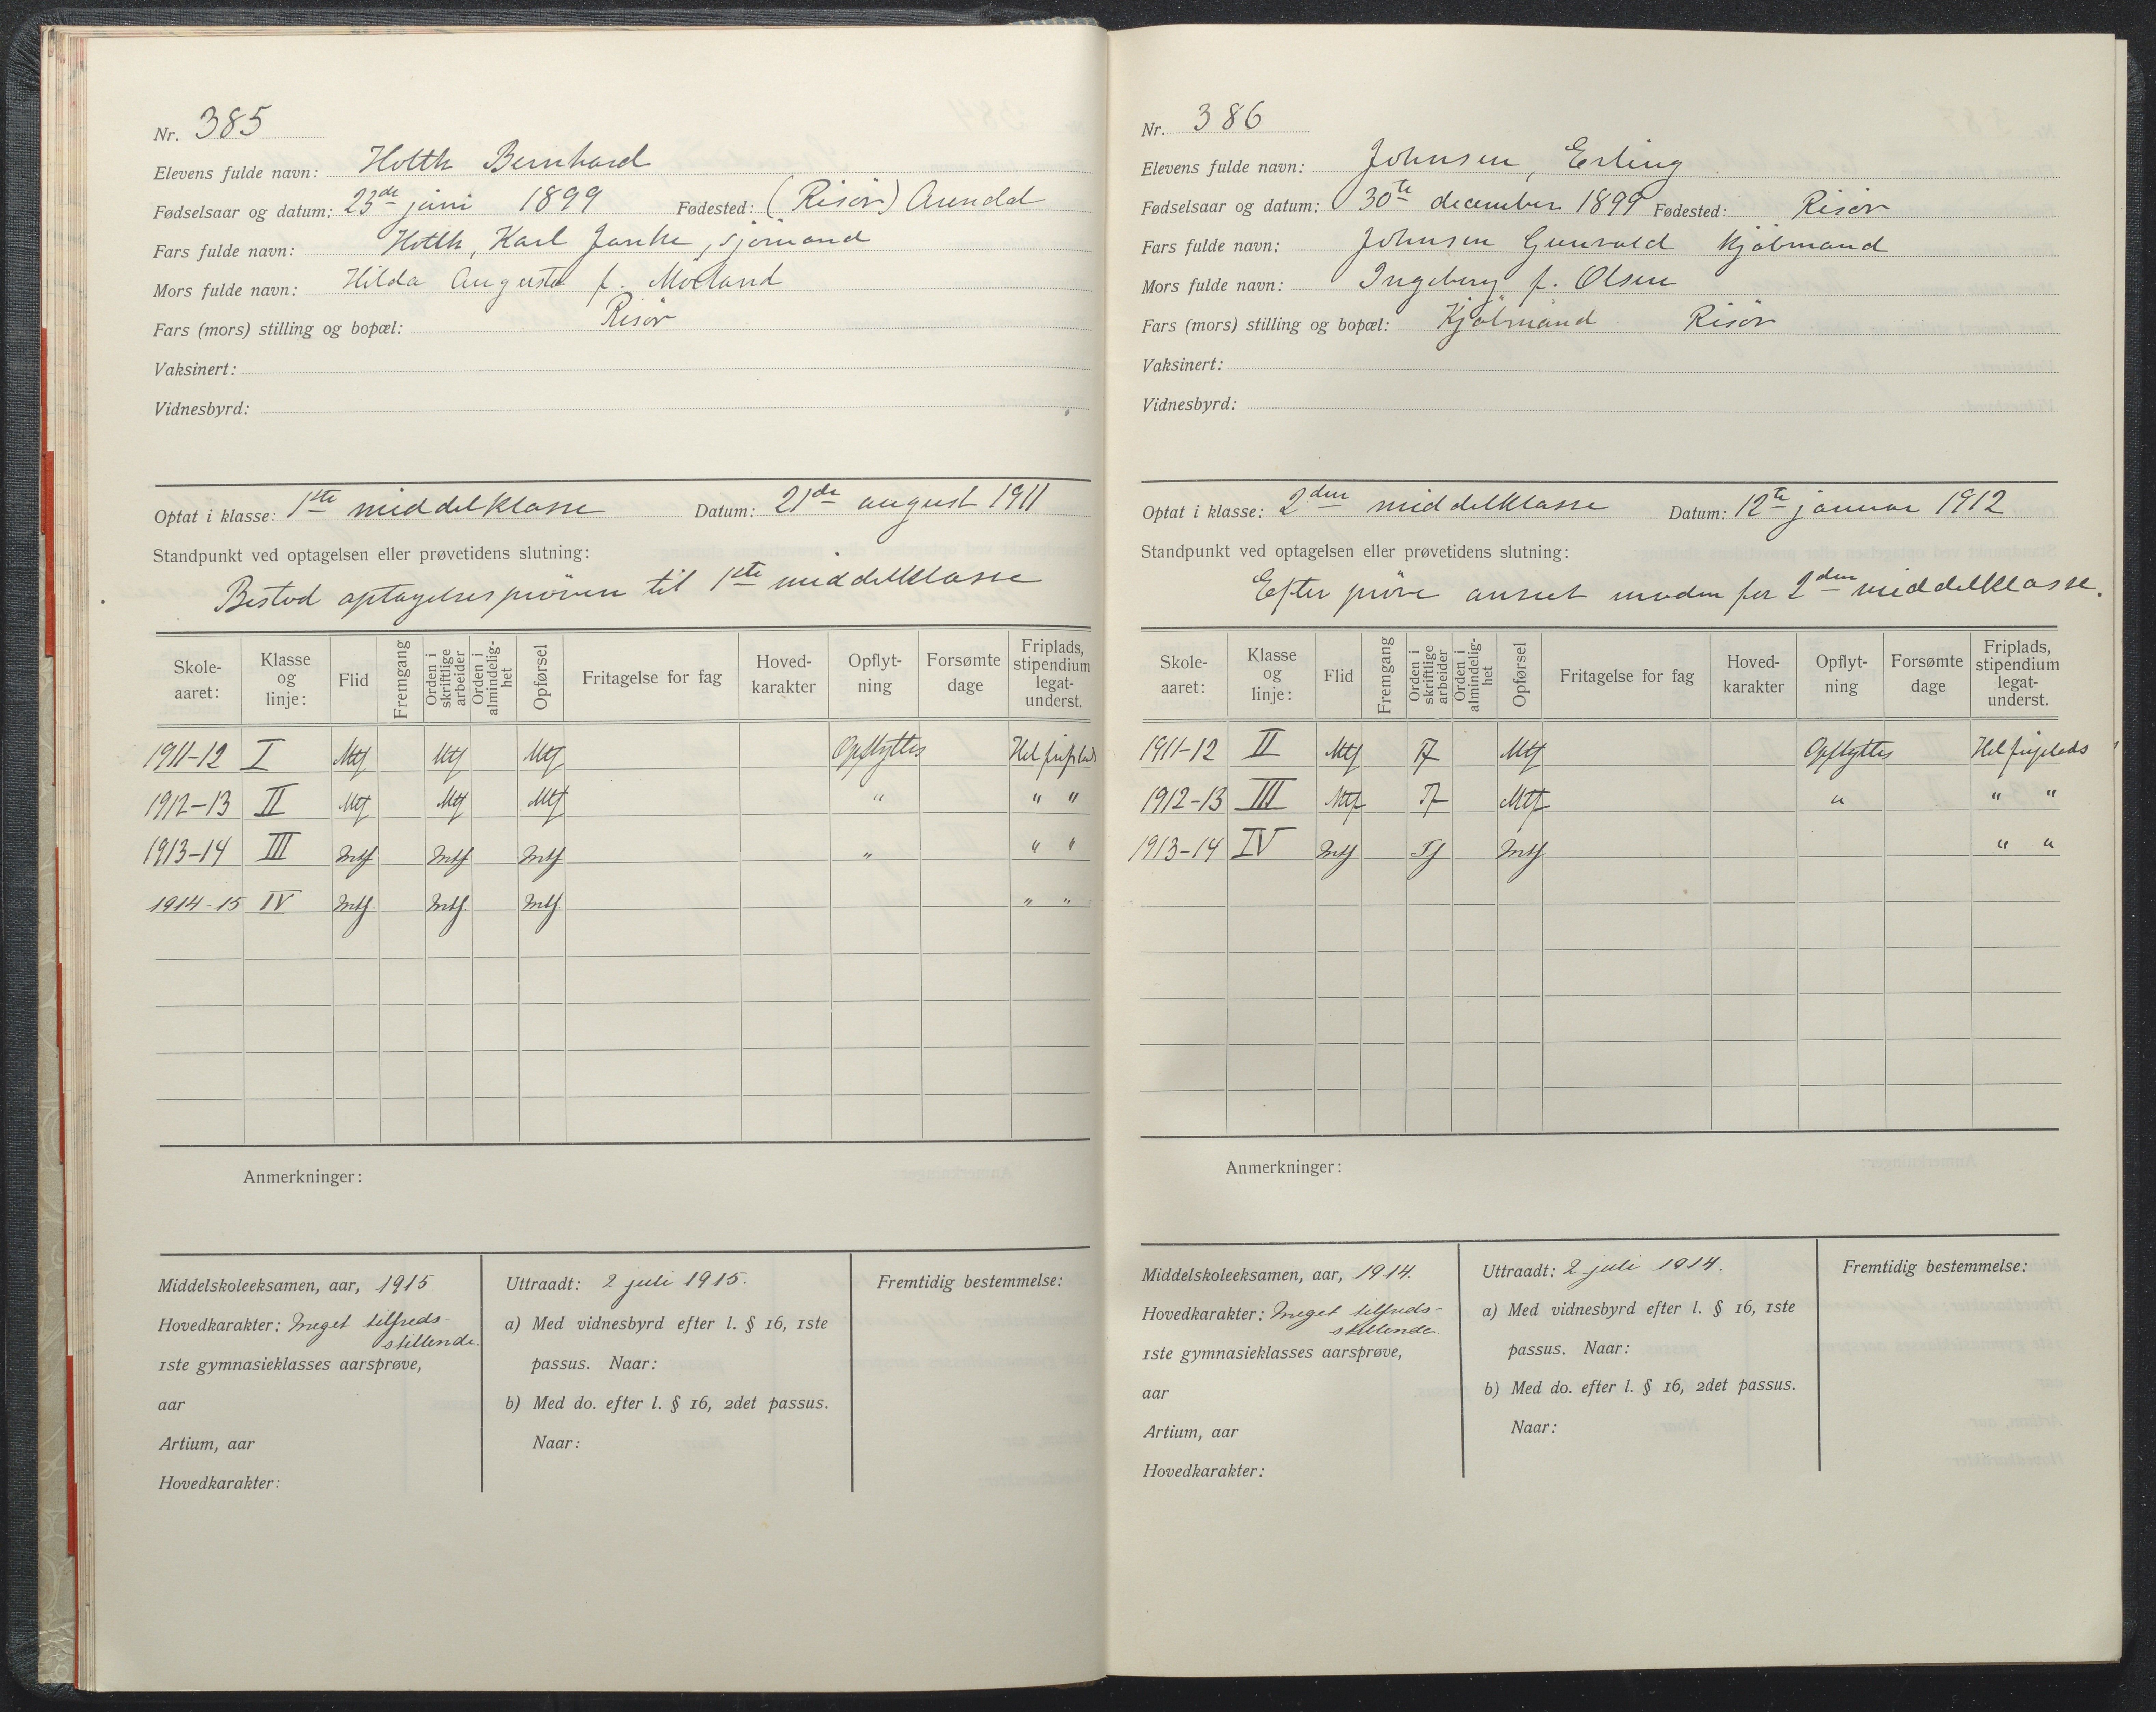 Nr. 385
Elevens fulde navn: Holth Bernhard
Fødselsaar og datum: 23de juni 1899 Fødested: (Risør) Arendal
Fars fulde navn: Holth, Karl Janke, sjømand
Mors fulde navn: Hilda Augusta f. Mörland
Fars (mors) stilling og bopæl: Risör
Vaksinert:
Vidnesbyrd:
Optat i klasse: 1ste middelklasse Datum: 21de august 1911
Standpunkt ved optagelsen eller prøvetidens slutning:
Bestod optagelsesprøven til 1ste middelklasse
Skole-aaret: Klasse og linje: Flid Fremgang Orden i skriftlige arbeider Orden i almindelig-het Opførsel Fritagelse for fag Hoved-karakter Opflyt-ning Forsømte dage Friplads, stipendium legat-underst.
1911-12 I Mtf Mtf Mtf Opflyttes Hel friplads
1912-13 II Mtf Mtf Mtf " " "
1913-14 III Mtf Mtf Mtf " " "
1914-15 IV Mtf Mtf Mtf " "
Anmerkninger:
Middelskoleeksamen, aar, 1915
Hovedkarakter: Meget tilfreds-
stillende.
1ste gymnasieklasses aarsprøve,
aar
Artium, aar
Hovedkarakter:
Uttraadt: 2 juli 1915.
a) Med vidnesbyrd efter l. § 16, 1ste
passus. Naar:
b) Med do. efter l. § 16, 2det passus.
Naar:
Fremtidig bestemmelse:
Nr. 386
Elevens fulde navn: Johnsen, Erling
Fødselsaar og datum: 30te december 1899 Fødested: Risør
Fars fulde navn: Johnsen Gunvald Kjøbmand
Mors fulde navn: Ingeborg f. Olsen
Fars (mors) stilling og bopæl: Kjøbmand Risør
Vaksinert:
Vidnesbyrd:
Optat i klasse: 2den middelklasse Datum: 12te januar 1912
Standpunkt ved optagelsen eller prøvetidens slutning:
Efter prøve anset moden for 2den middelklasse.
Skole-aaret: Klasse og linje: Flid Fremgang Orden i skriftlige arbeider Orden i almindelig-het Opførsel Fritagelse for fag Hoved-karakter Opflyt-ning Forsømte dage Friplads, stipendium legat-underst.
1911-12 II Mtf Tf Mtf Opflyttes Hel friplads
1912-13 III Mtf Tf Mtf " " "
1913-14 IV Mtf Tf Mtf " "
Anmerkninger:
Middelskoleeksamen, aar, 1914.
Hovedkarakter: Meget tilfreds-
stillende
1ste gymnasieklasses aarsprøve,
aar
Artium, aar
Hovedkarakter:
Uttraadt: 2 juli 1914.
a) Med vidnesbyrd efter l. § 16, 1ste
passus. Naar:
b) Med do. efter l. § 16, 2det passus.
Naar:
Fremtidig bestemmelse: